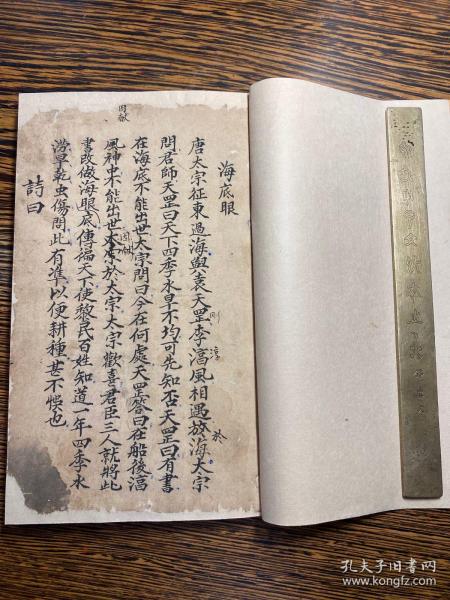 海底眼
唐太宗征東過海與袁天罡李湻風相遇放海太宗
剛
淳
於
問君師天罡曰天下四季水旱不均可先知否天罡曰有書
在海底不能出世太宗問曰今在何處天罡答曰在船後湻
風神不能出世本於太宗太宗歡喜君臣三人就將此
因献
書改做海眼底傳徧天下使黎民百姓知道一年四季水
澇旱乾虫傷問此有準以便耕種甚不悞也
詩曰
孔夫子旧书网
www.kongfz.com